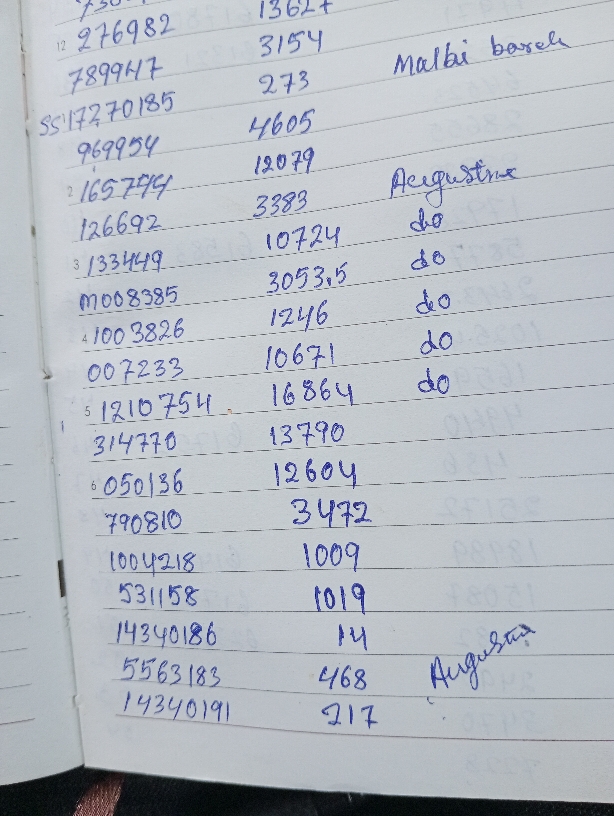 13627
12 276982 3154
789947 273 Malbi barek
SS17270185 4605
969954 12079
2 165744 3383 Augustine
126692 10724 do
3 133449 3053.5 do
M008385 1246 do
4 1003826 10671 do
007233 16864 do
5 1210754 13790
314770 12604
6 050136 3472
790810 1009
1004218 1019
531158 14
14340186 468 Augustin
5563183 217
14340191